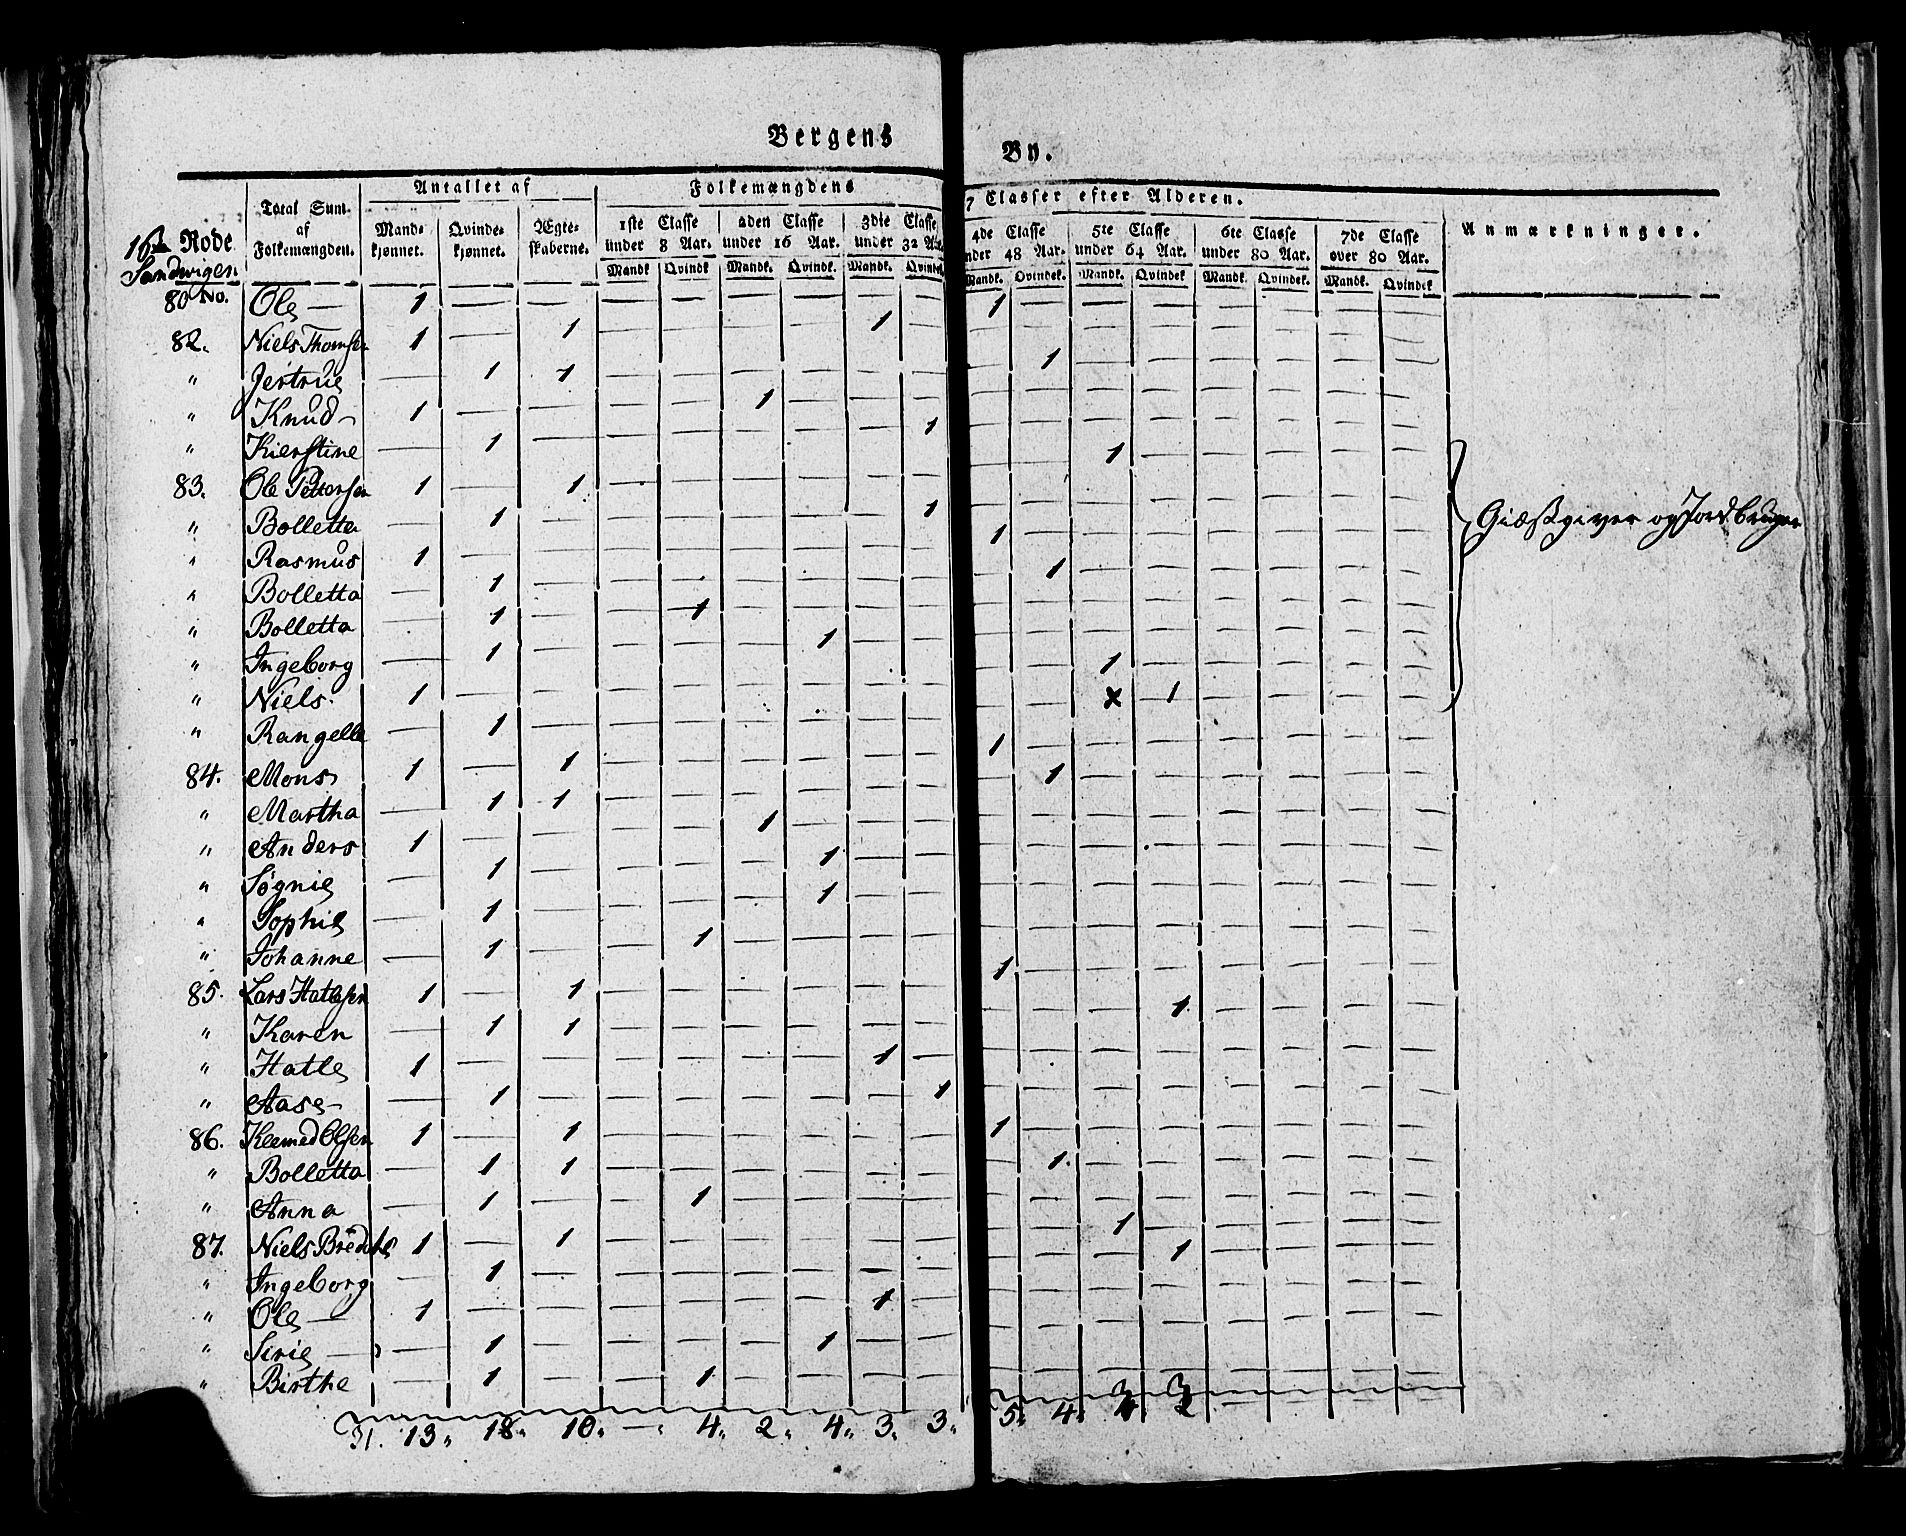 Bergens By.
16de Rode Sandwigen No.
Total Sum. af Folkemængden.
Antallet af
Mand-kjønnet. Qvinde-kjønnet. Ægte-skaberne.
Folkemængdens 7 Classer efter Alderen.
1ste Classe under 8 Aar. 2den Classe under 16 Aar. 3die Classe under 32 Aar. 4de Classe under 48 Aar. 5te Classe under 64 Aar. 6te Classe under 80 Aar. 7de Classe over 80 Aar.
Mandk Qvindk Mandk. Qvindk. Mandk. Qvindek Mandk. Qvindek. Mandk. Qvindek Mandk. Qvindek. Mandk. Qvindek
Anmærkninger.
80 Ole — 1 — — — — — — — — 1 — — — — — — —
82. Niels Thomsen 1 — 1 — — — — 1 — — — — — — — — —
" Jertrue — 1 1 — — — — — — — 1 — — — — — —
" Knud 1 — — — — 1 — — — — — — — — — — —
" Kierstine — 1 — — — — — — 1 — — — — — — — —
83. Ole Pettersen 1 — 1 — — — — — — — — 1 — — — — —
" Bolletta — 1 — — — — — — 1 — — — — — — — —
" Rasmus 1 — — — — — — — — 1 — — — — — — —
" Bolletta — 1 — — — — — — — — 1 — — — — — —
" Bolletta — 1 — — 1 — — — — — — — — — — — —
" Ingeborg — 1 — — — — 1 — — — — — — — — — —
" Niels 1 — — — — — — — — — — 1 — — — — —
" Rangelle — 1 — — — — — — — — — x 1 — — — —
Giæstgiver og Jordbruger
84. Mons 1 — 1 — — — — — — 1 — — — — — — —
" Martha — 1 1 — — — — — — — 1 — — — — — —
" Anders 1 — — — — 1 — — — — — — — — — — —
" Søgnie — 1 — — — — 1 — — — — — — — — — —
" Sophie — 1 — — — — 1 — — — — — — — — — —
" Johanne — 1 — — 1 — — — — — — — — — — — —
85. Lars Hatlesen 1 — 1 — — — — — — 1 — — — — — — —
" Karen — 1 1 — — — — — — — — — 1 — — — —
" Hatle 1 — — — — — — 1 — — — — — — — — —
" Aase — 1 — — — — — — 1 — — — — — — — —
86. Klemed Olsen 1 — 1 — — — — — — 1 — — — — — — —
" Bolletta — 1 1 — — — — — — — 1 — — — — — —
" Anna — 1 — — 1 — — — — — — — — — — — —
87. Niels 1 — 1 — — — — — — — — 1 — — — — —
" Ingeborg — 1 — — — — — — — — — — 1 — — — —
" Ole — 1 — — — — — — 1 — — — — — — — — —
" Sirie — — 1 — — — — 1 — — — — — — — — — —
" Birthe — 1 — — 1 — — — — — — — — — — — —
31. 13. 18. 10. — 4. 2. 4. 3. 3. 5. 4. 3 3 2 — — — —